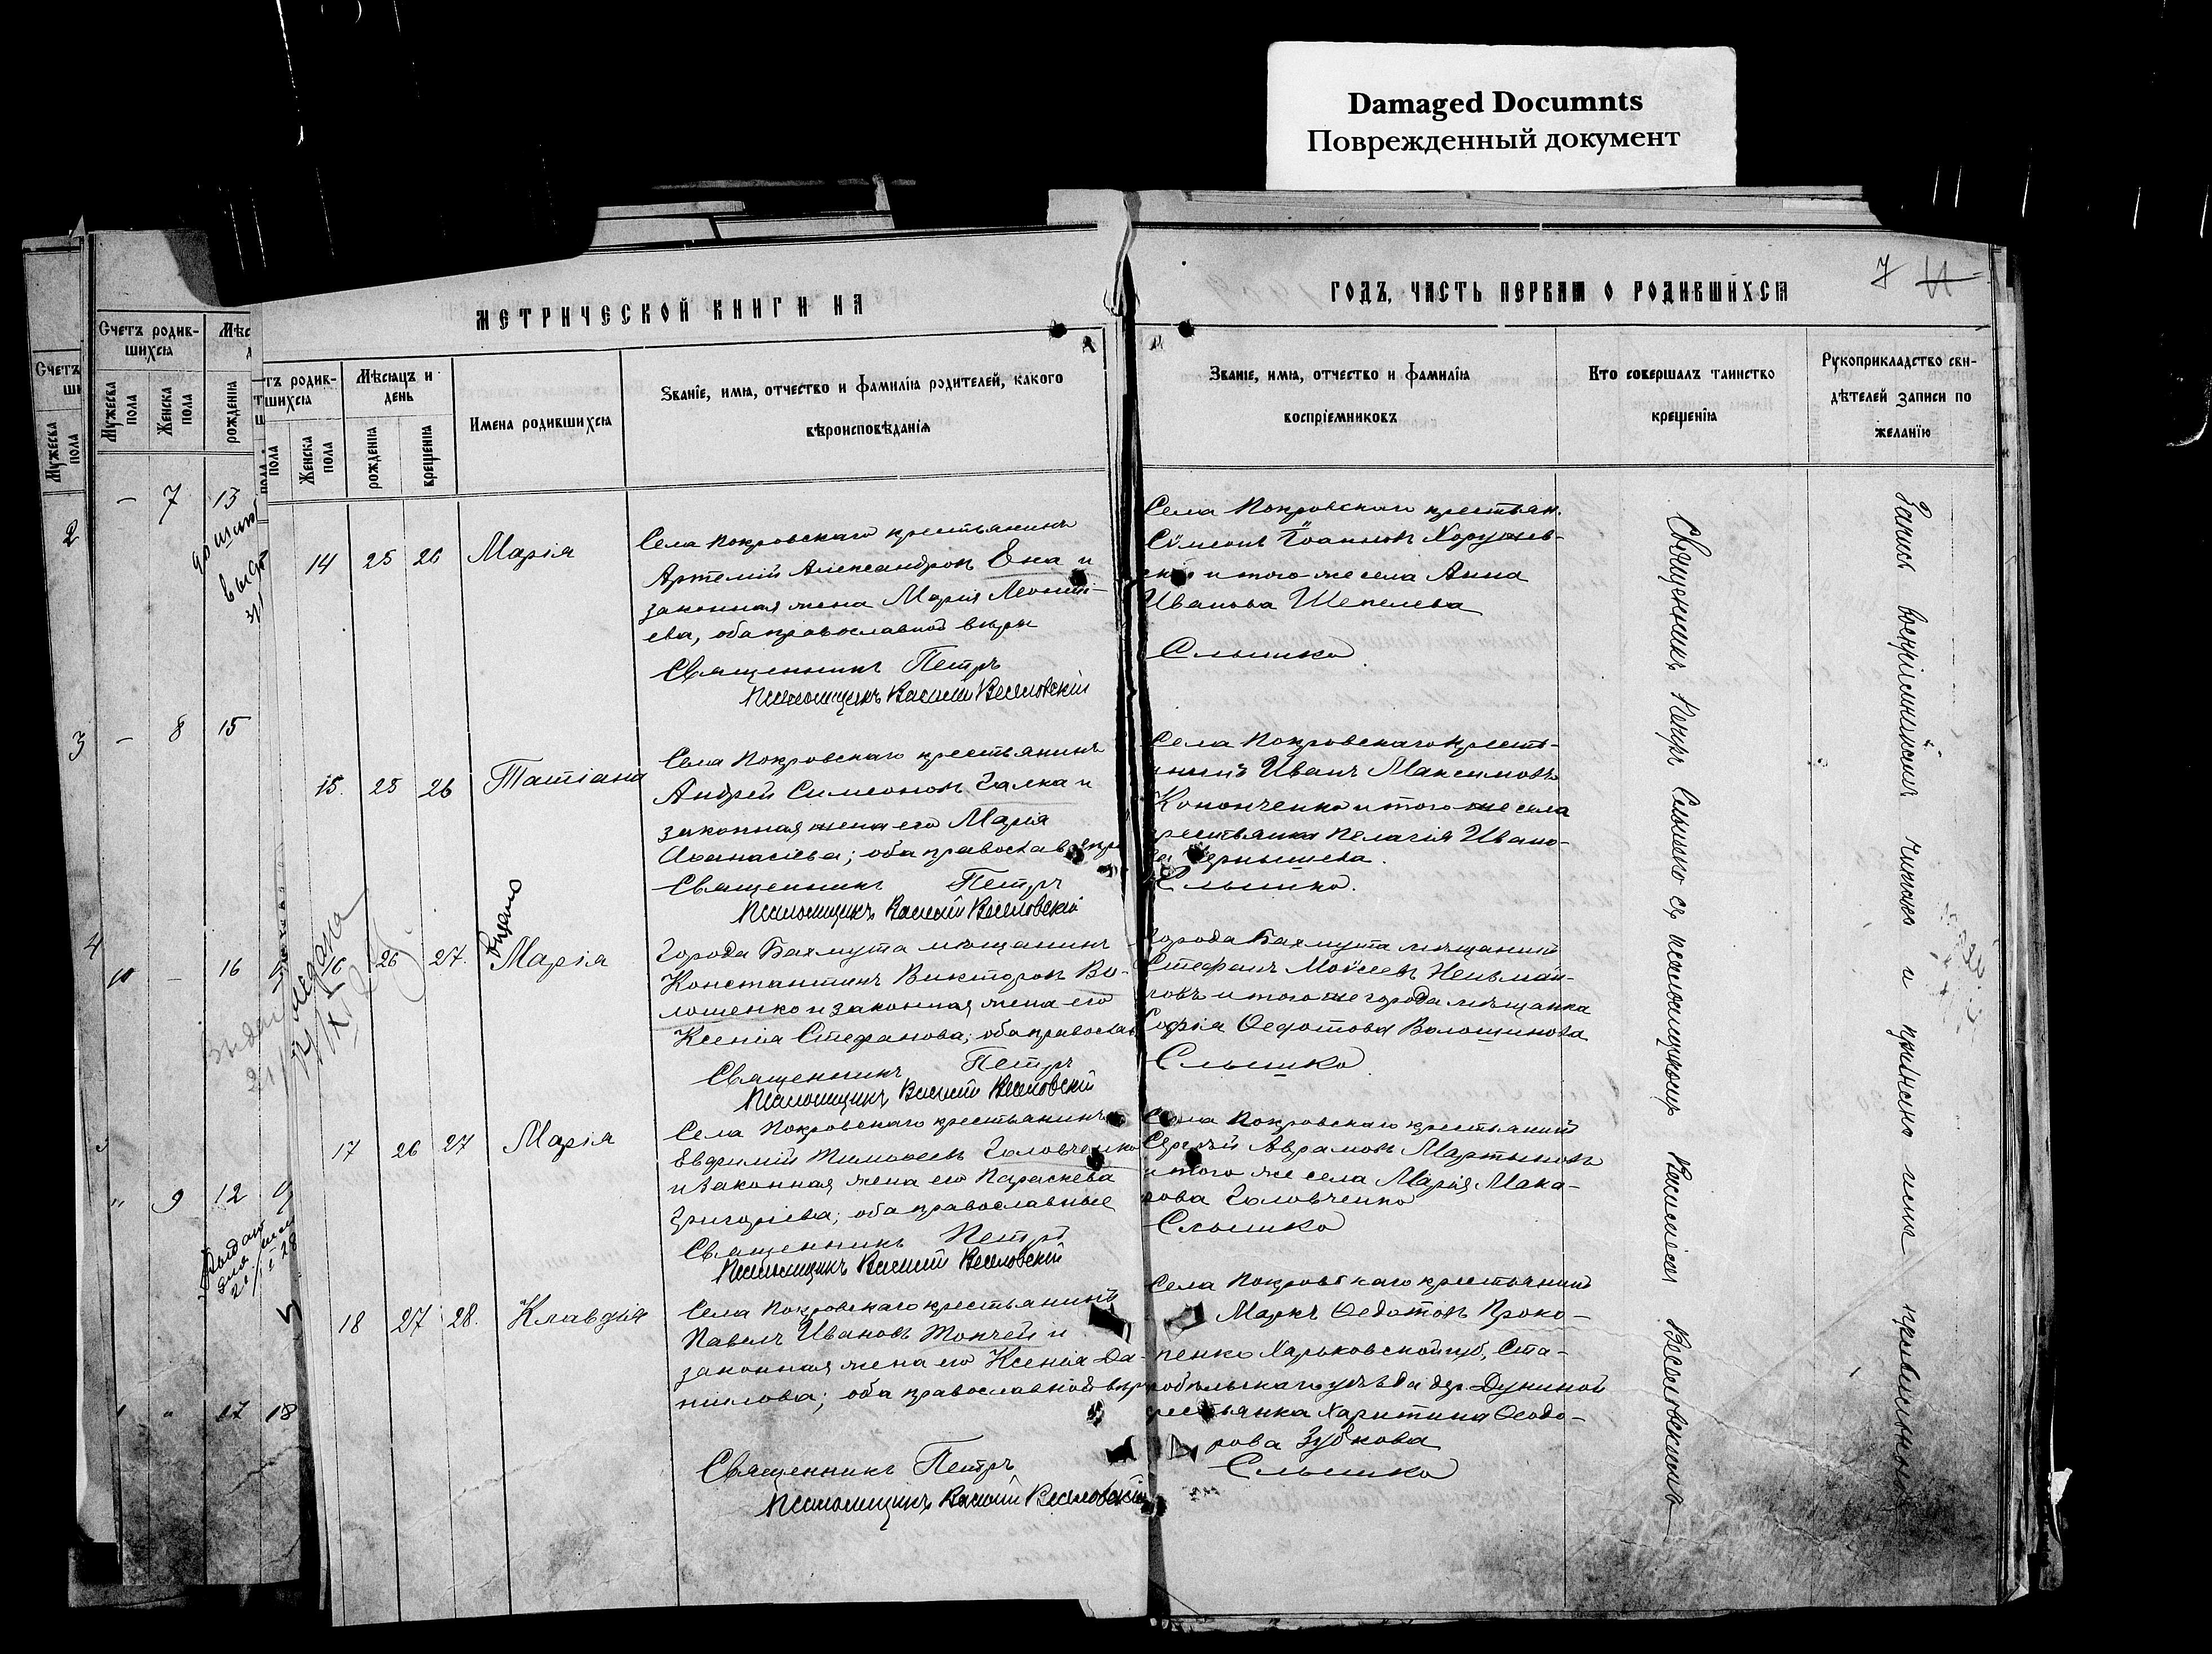 Damaged Documnts
Поврежденный документ
7
МЕТРИЧЕСКОЙ КНИГИ НА
ГОДЪ, ЧАСТЬ ПЕРВАЯ О РОДИВШИХСЯ
Счетъ
Мужеска пола
Счетъ родив-
шихся
Мужеска пола
Женска пола
рожденія
тъ родив-
шихся
пола
Женска пола
Мѣсяцъ и
день
рожденія
крещенія
Имена родившихся
Званіе, имя, отчество и фамилія родителей, какого
вѣроисповѣданія
Званіе, имя, отчество и фамилія
воспріемниковъ
Кто совершалъ таинство
крещенія
Рукоприкладство сви-
дѣтелей записи по
желанію
2
3
4
– 7 13
– 8 15
10 – 16
" 9 12
17 18
14 25 26 Марія
Села Покровскаго крестьянинъ
Артемій Александровъ Ена и
законная жена Марія Леонті-
ева, оба православной вѣры
Священникъ Петръ
Псаломщикъ Василій Веселовскій
Села Покровскаго крестьян.
Сѵмеонъ Іоанновъ Хоружев-
скій и того же села Анна
Иванова Шепелева
Слышко
15. 25 26 Татіана
Села Покровскаго крестьянинъ
Андрей Симеоновъ Галка и
законная жена его Марія
Аѳанасіева; оба православ. вѣр
Священникъ Петръ
Псаломщикъ Василій Веселовскій
Села Покровскаго кресть-
янинъ Иванъ Максимовъ
Кононченко и того же села
крестьянка Пелагія Ивано-
ва Чернышева.
Слышко.
16 26 27. Марія
Города Бахмута мѣщанинъ
Константинъ Викторовъ Во-
лошенко и законная жена его
Ксенія Стефанова; оба православ
Священникъ Петръ
Псаломщикъ Василій Веселовскій
Города Бахмута мѣщанинъ
Стефанъ Моисеевъ
и того же города мѣщанка
Софія Ѳедотова Волошинова
Слышко
17 26 27 Марія
Села Покровскаго крестьянинъ
Евфимій Тимоѳеевъ Головченко
и законная жена его Параскева
Григоріева; оба православные
Священникъ Петръ
Псаломщикъ Василій Веселовскій
Села Покровскаго крестьянинъ
Сергѣй Аврамовъ Мартыновъ
и того же села Марія Мака-
рова Головченко
Слышко
18 27 28. Клавдія
Села Покровскаго крестьянинъ
Павелъ Ивановъ Топчей и
законная жена его Ксенія Да-
нилова; оба православной вѣр
Священникъ Петръ
Псаломщикъ Василій Веселовскій
Села Покровскаго крестьянинъ
Маркъ Ѳедотовъ Проко-
пенко Харьковской губ, Ста-
робѣльскаго уѣзда дер. Дуниной
крестьянка Харитина Ѳеодо-
рова Зубкова
Слышко
Священникъ Петръ Слышко съ псаломщикомъ Василіемъ Веселовскимъ